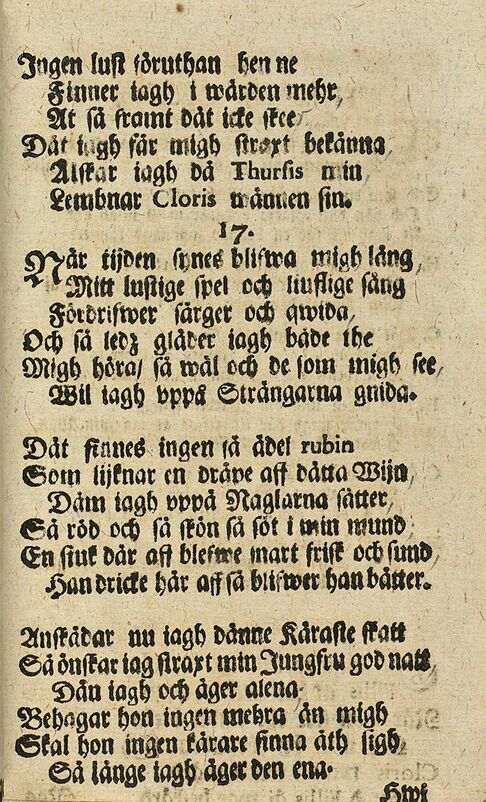 Ingen lust föruthan henne
Finner iagh i wärden mehr,
At så framt dät icke skee
Dät iagh får migh straxt bekänna
Älskar iagh då Thursis min
Lembnar Cloris wännen sin.
17.
När tijden synes blifwa migh lång,
Mitt lustige spel och liuflige sång
Fördrifwer särger och qwida,
Och så ledz gläder iagh både the
Migh höra/ så wäl och de som migh see,
Wil iagh vppå Strängarna gnida.
Dät finnes ingen så ädel rubin
Som lijknar en dråpe aff dätta Wijn,
Däm iagh vppå Naglarna sätter,
Så röd och så skön så söt i min mund,
En siuk där aff blefwe mart frisk och sund,
Han dricke här aff så blifwer han bätter.
Anskådar nu iagh dänne Käraste skatt
Så önskar iag straxt min Jungfru god natt,
Dän iagh och äger alena.
Behagar hon ingen mehra än migh
Skal hon ingen kärare finna åth sigh,
Så länge iagh äger den ena.
Hwi